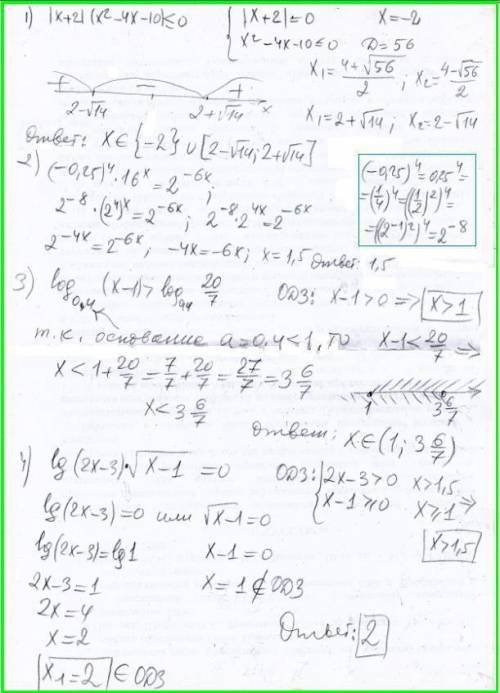 1) |x+2|(x²-4x-10)≤0 { |x+2|≤0 x=-2
x²-4x-10≤0 D=56
x₁=(4+√56)/2; x₂=(4-√56)/2
+ − + x
2-√14 2+√14
x₁=2+√14; x₂=2-√14
Ответ: x∈{-2}∪[2-√14; 2+√14]
2) (-0,25)⁴·16ˣ=2⁻⁶ˣ;
2⁻⁸·(2⁴)ˣ=2⁻⁶ˣ; 2⁻⁸·2⁴ˣ=2⁻⁶ˣ
2⁻⁴ˣ=2⁻⁶ˣ; -4x=-6x; x=1,5 Ответ: 1,5
(-0,25)⁴=0,25⁴=
=(1/4)⁴=((1/2)²)⁴=
=((2⁻¹)²)⁴=2⁻⁸
3) log₀,₄(x-1)>log₀,₄ 20/7 ОДЗ: x-1>0 => x>1
т.к. основание a=0,4<1, то x-1<20/7 =>
x<1+20/7=7/7+20/7=27/7=3 6/7
x<3 6/7
1 3 6/7
Ответ: x∈(1; 3 6/7)
4) lg(2x-3)·√(x-1)=0 ОДЗ: { 2x-3>0 x>1,5
x-1≥0 x≥1 =>
x>1,5
lg(2x-3)=0 или √(x-1)=0
lg(2x-3)=lg1 x-1=0
2x-3=1 x=1∉ОДЗ
2x=4
x=2
Ответ: 2
x₁=2 ∈ОДЗ